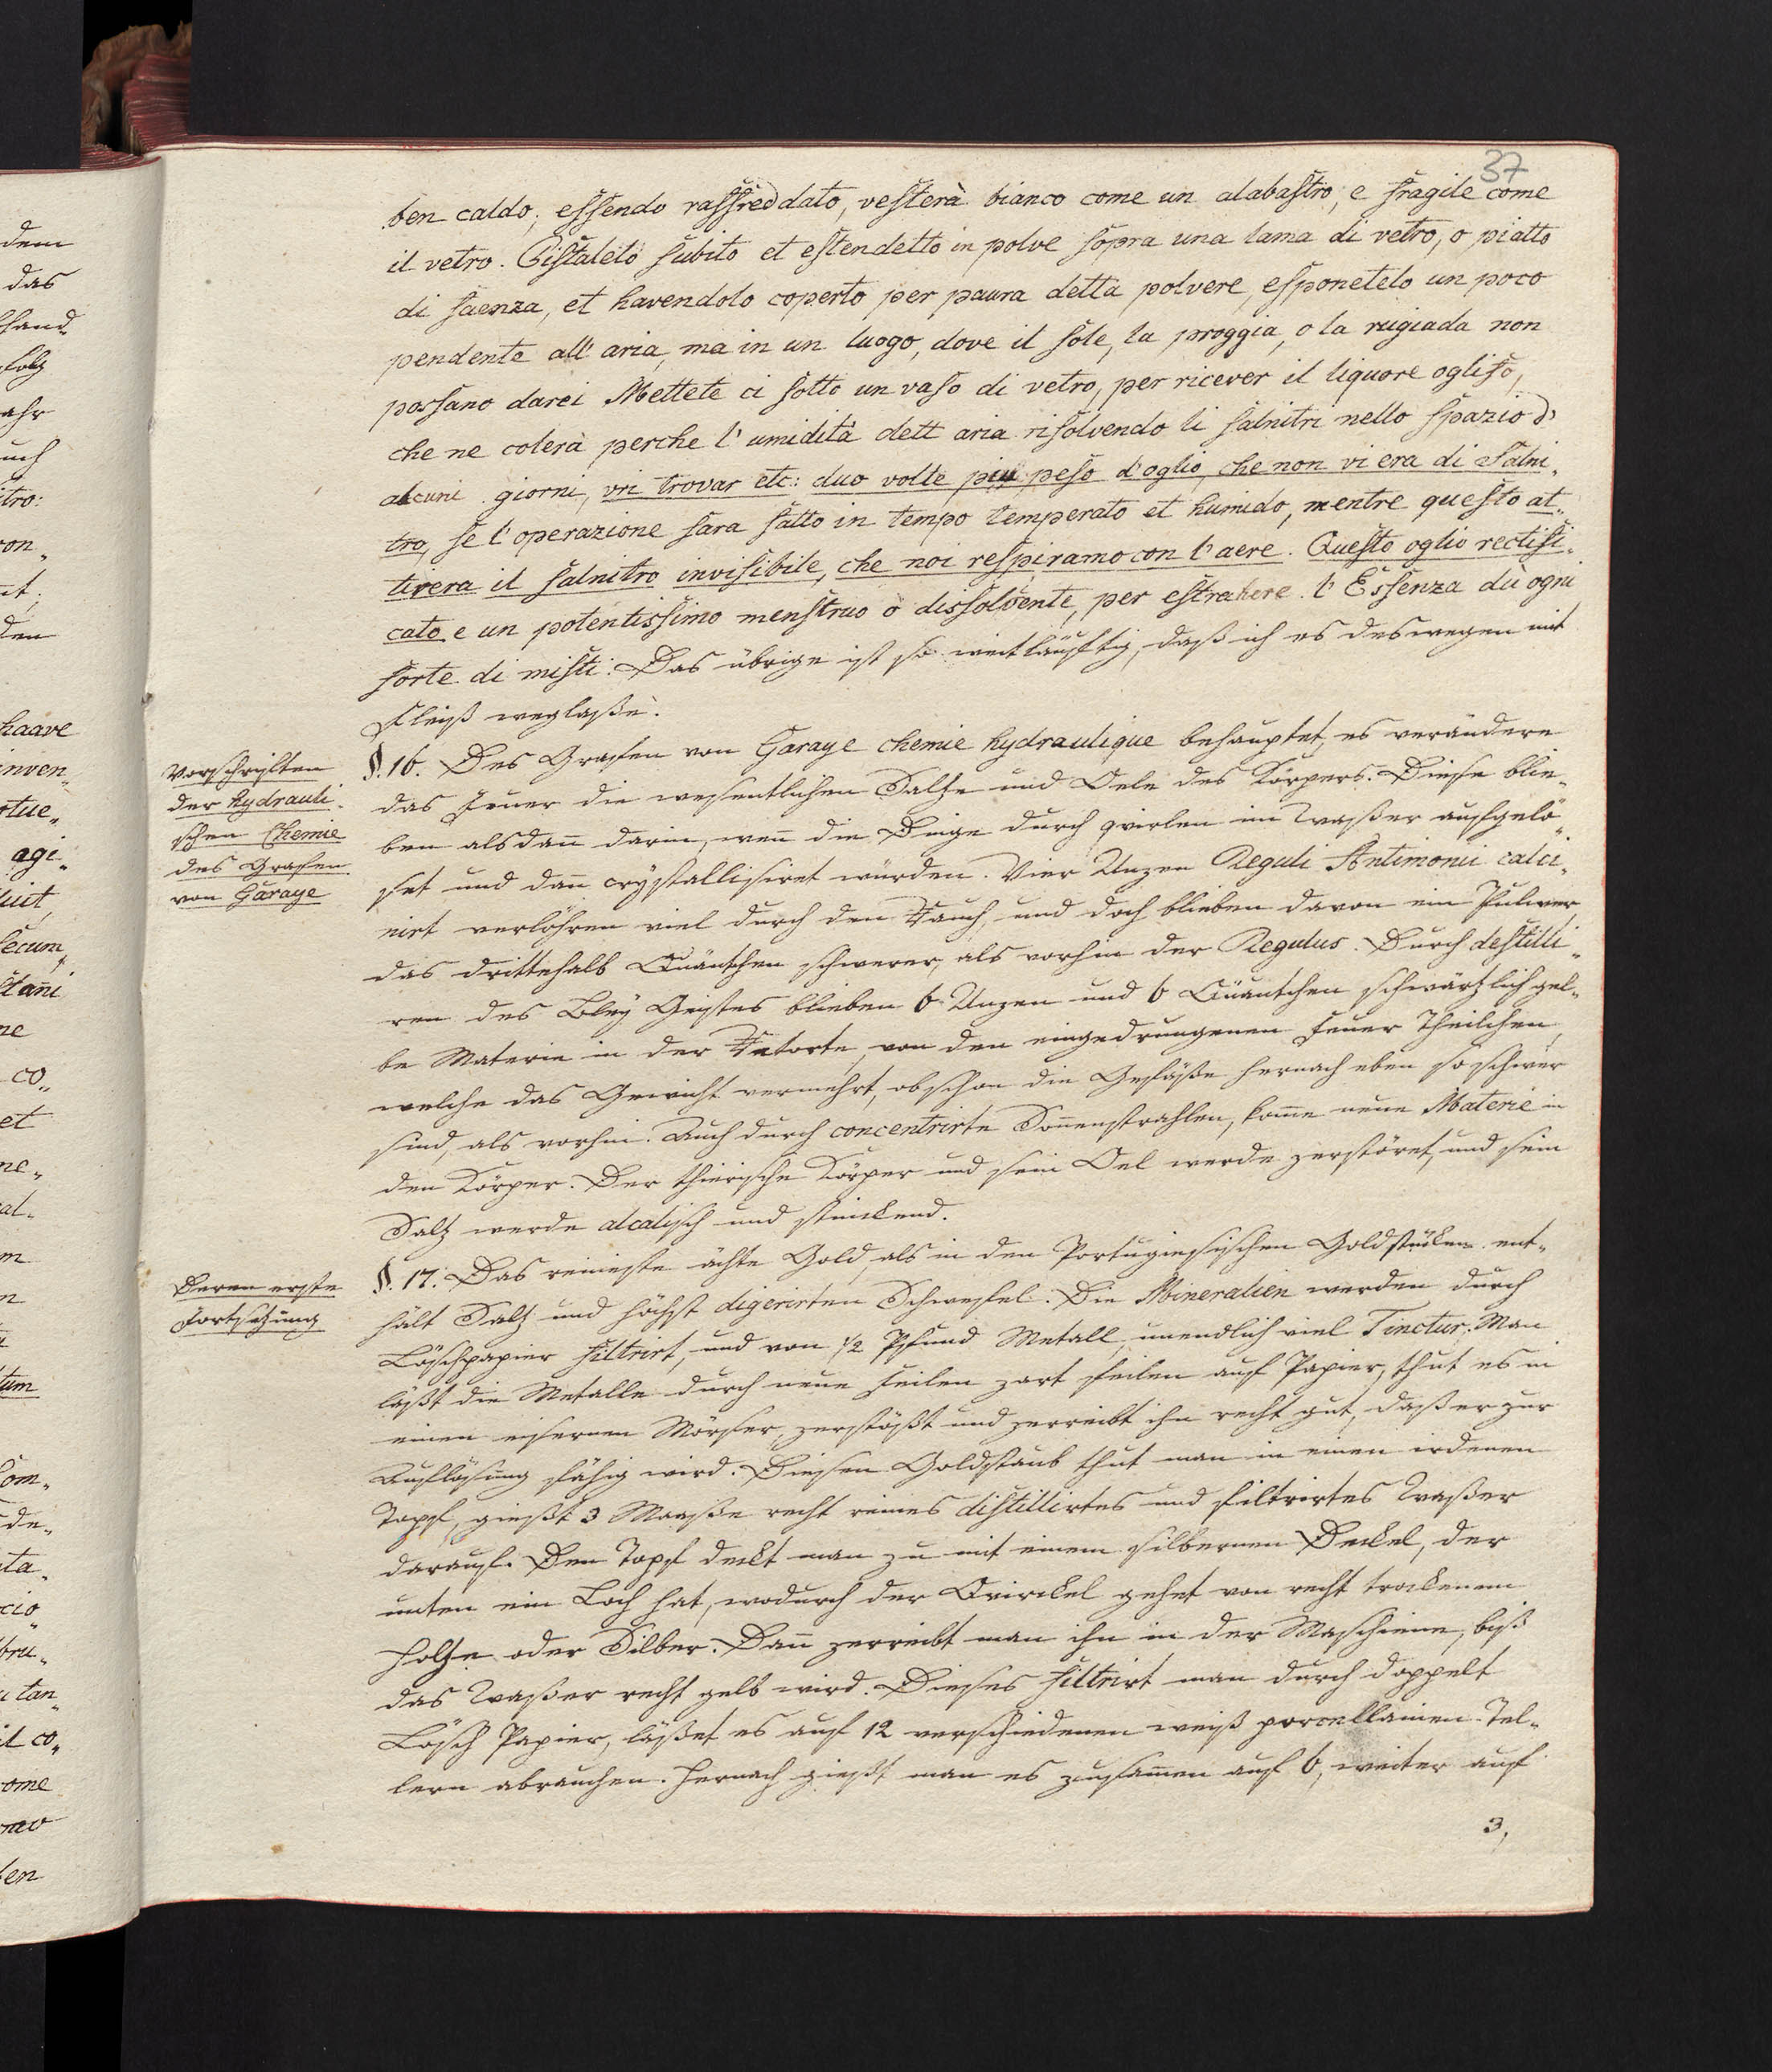 37
ben caldo; essendo raffreddato, vesterà bianco come un alabastro, e fragile come
il vetro. Pistalelo subito et estendetto in polve sopra una lama di vetro, o piatto
di faenza, et havendolo coperto per paura detta polvere, esponetelo un poco
pendente all' aria, ma in un luogo, dove il sole, la proggia, o la rugiada non
possano darei Mettete ci sotto un vaso di vetro, per ricever il liquore ogliso,
che ne colerà perche l' umidità dett aria risolvendo li salnitri nello spazio d'
alcuni giorni, vri trovar etc: duo volte piu peso d'oglio, che non vi era di Salni„
tro, se l'operazione sara fatto in tempo temperato et humido, mentre questo at„
tirera il salnitro invisibile, che noi respiramo con l'aere. Questo oglio rectifi„
cato e un potentissimo menstruo o dissolvente, per estrahere l'Essenza dù ogni
sorte di misti. Das übrige ist so weitläuftig, daß ich es deswegen mit
Fleiß weglaße.
Vorschriften
der hydrauli„
schen Chemie
des Grafen
von Garaye
§. 16. Des Grafen von Garaye chemie hydraulique behauptet, es verändere
das Feuer die wesentlichen Salze und Oele des Körpers. Diese blie„
ben alsdañ darin, weñ die Dinge durch qvirlen im Waßer aufgelö„
set und dañ crystallisiret würden. Vier Unzen Reguli Antimonii calci„
nirt verlöhren viel durch den Rauch, und doch blieben davon ein Pulver,
das drittehalb Quäntchen schwerer, als vorhin der Regulus. Durch destilli„
ren des Bley Geistes blieben 6 Unzen und 6 Quäntchen schwärzlich gel„
be Materie in der Retorte, von den eingedrungenen Feuer Theilchen,
welche das Gewicht vermehrt, obschon die Gefäße hernach eben so schwer
sind, als vorhin. Auch durch concentrirte Soñenstrahlen, kom̃e neue Materie in
den Körper. Der thierische Körper und sein Oel werde zerstöret, und sein
Salz werde alcalisch und stinckend.
Deren erste
Fortsetzung
§. 17. Das reineste ächte Gold, als in den Portugiesischen Goldstücken ent„
hält Salz und höchst digerirten Schwefel. Die Mineralien werden durch
Löschpapier filtrirt, und von 1/2 Pfund Metall, unendlich viel Tinctur. Man
läßt die Metalle durch neue Feilen zart feilen auf Papier, thut es in
einen eisernen Mörser, zerstößt und zerreibt ihn recht gut, daß er zur
Auflösung fähig wird. Diesen Goldstaub thut man in einen irdenen
Topf, gießt 3 Maaße recht reines distillirtes und filtrirtes Waßer
darauf. Den Topf deckt man zu mit einem silbernen Deckel, der
unten ein Loch hat, wodurch der Qvirckel gehet von recht trockenem
Holze oder Silber. Dañ zerreibt man ihn in der Maschiene, biß
das Waßer recht gelb wird. Dieses filtrirt man durch doppelt
Lösch Papier, läßet es auf 12 verschiedenen weiß porcellainen Tel„
lern abrauchen. Hernach gießt man es zusam̃en auf 6, weiter auf
3,